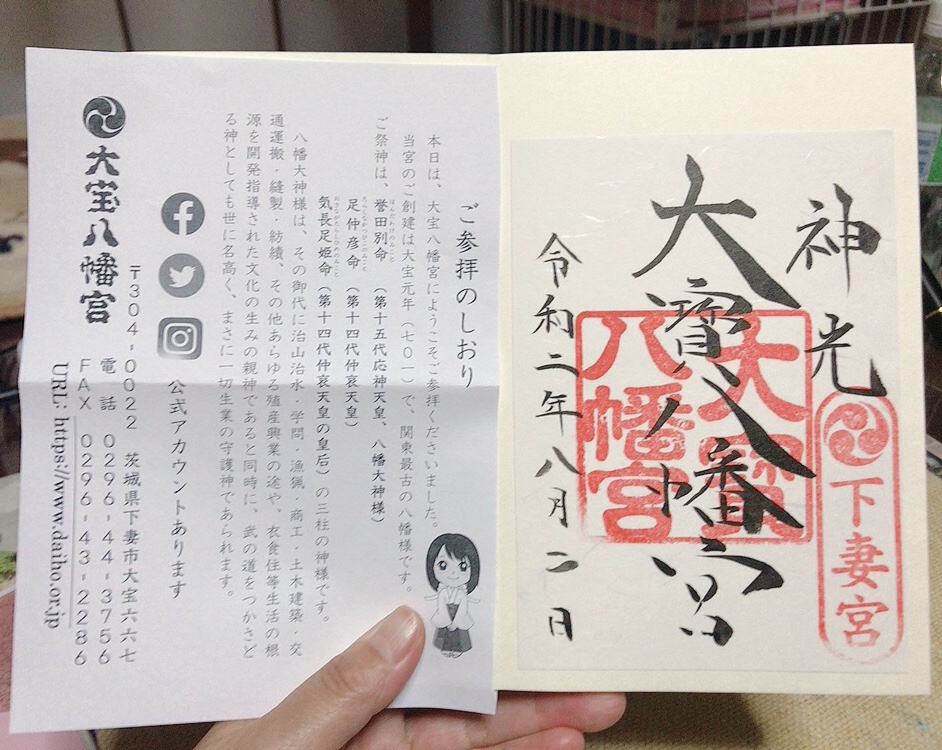 神光
大寳八幡宮
令和二年八月二日
大寳
八幡宮
下妻宮
ご参拝のしおり
本日は、大宝八幡宮にようこそご参拝くださいました。
当宮のご創建は大宝元年（七〇一）で、関東最古の八幡様です。
ご祭神は、誉田別命（第十五代応神天皇、八幡大神様）
ほんだわけのみこと
足仲彦命（第十四代仲哀天皇）
たらしなかつひこのみこと
気長足姫命（第十四代仲哀天皇の皇后）の三柱の神様です。
おきながたらしひめのみこと
八幡大神様は、その御代に治山治水・学問・漁猟・商工・土木建築・交
通運搬・縫製・紡績、その他あらゆる殖産興業の途や、衣食住等生活の根
源を開発指導された文化の生みの親神であると同時に、武の道をつかさど
る神としても世に名高く、まさに一切生業の守護神であられます。
公式アカウントあります
大宝八幡宮
〒304-0022 茨城県下妻市大宝六六七
電話 0296-44-3756
FAX 0296-43-2286
URL: https://www.daiho.or.jp